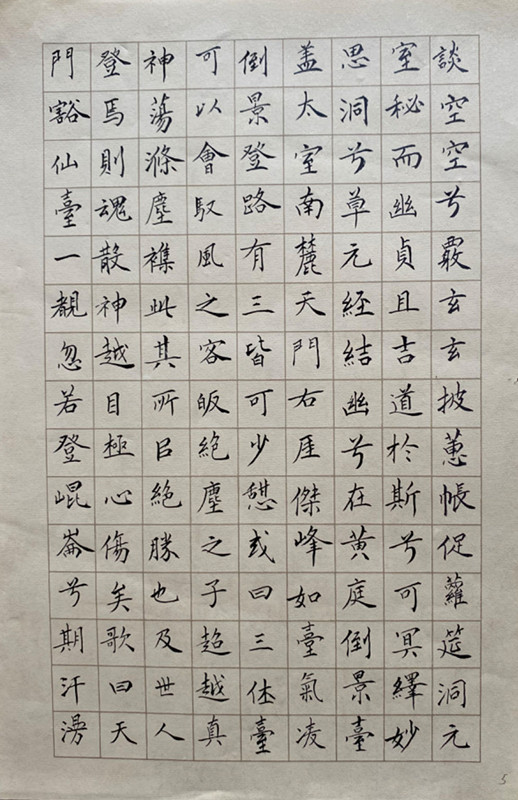 談空空兮覈玄玄披蕙帳促蘿筵洞元
室秘而幽貞且吉道於斯兮可冥繹妙
思洞兮草元經結幽兮在黄庭倒景臺
盖太室南麓天門右厓傑峰如臺氣凌
倒景登路有三皆可少憩或曰三休臺
可以會馭風之客皈絕塵之子超越真
神蕩滌塵襟此其所㠯絕勝也及世人
登馬則魂散神越目極心傷矣歌曰天
門豁仙臺一覩忽若登崐崙兮期汗漫
5